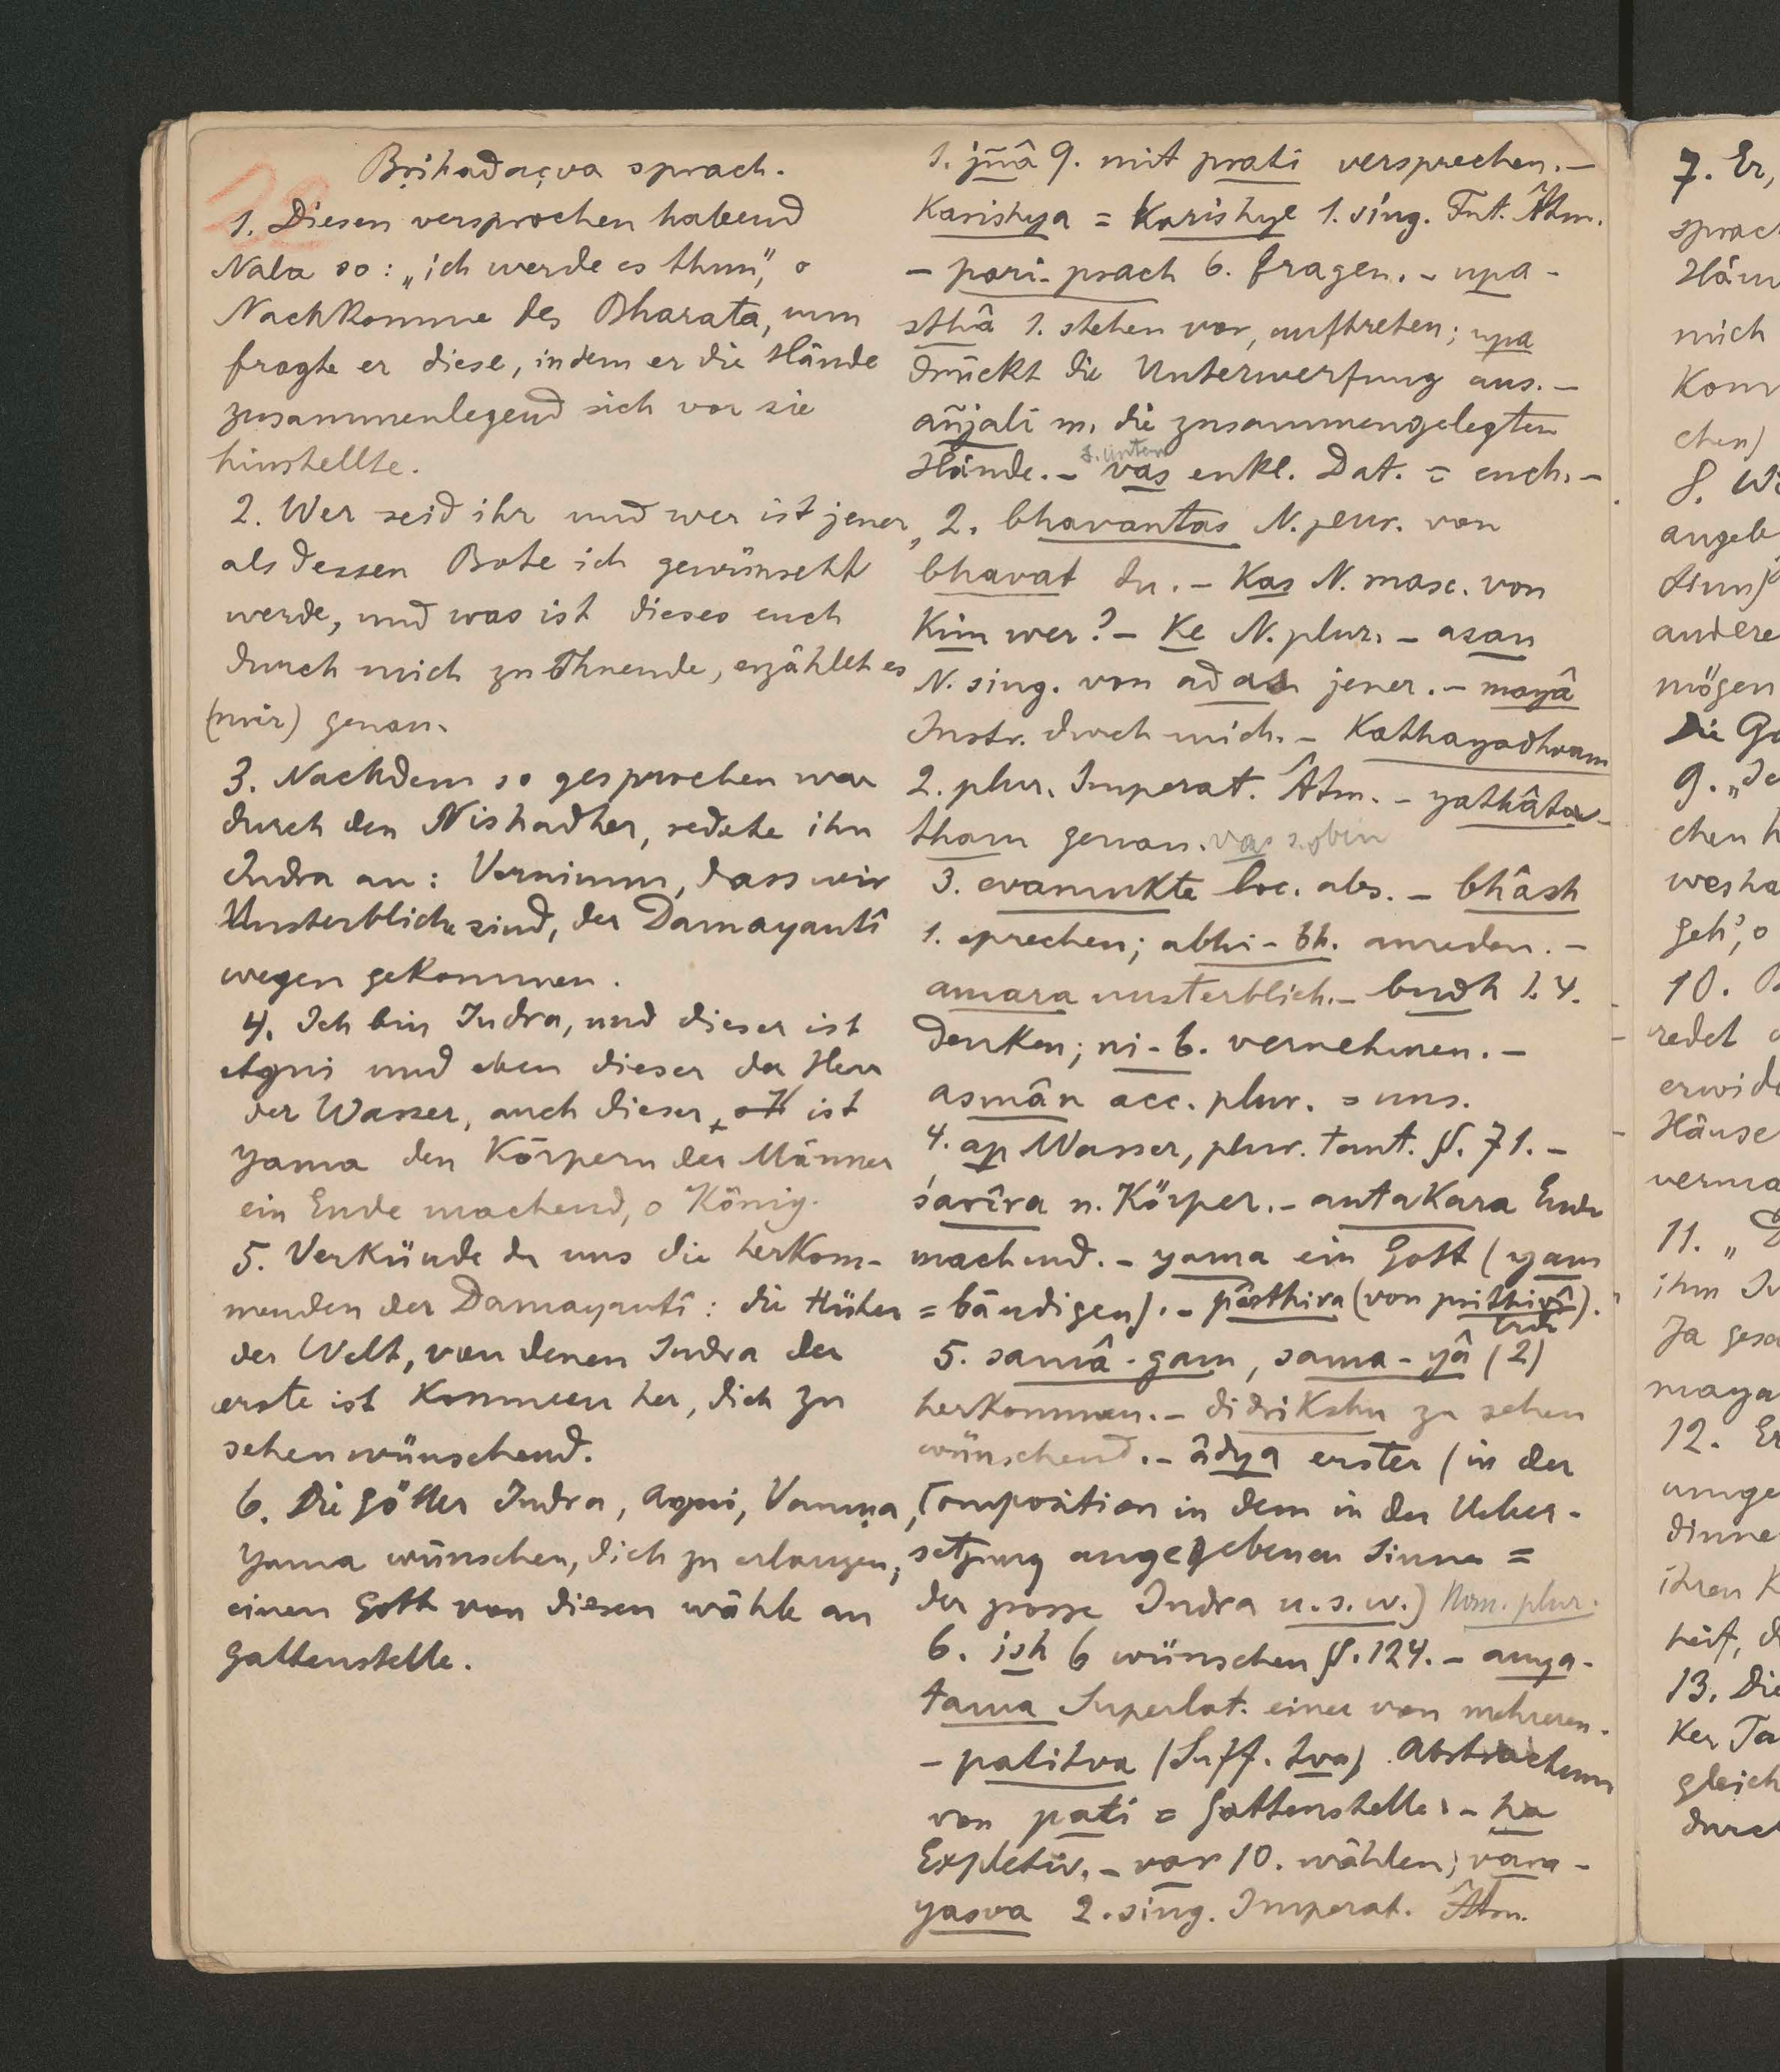 Bṛihadaçva sprach.
1. Diesen versprochen habend
Nala so: „ich werde es thun“, o
Nachkomme des Bharata, nun
fragte er diese, indem er die Hände
zusammenlegend sich vor sie
hinstellte.
2. Wer seid ihr und wer ist jener,
als dessen Bote ich gewünscht
werde, und was ist dieses euch
durch mich zu Thuende, erzählet es
(mir) genau.
3. Nachdem so gesprochen war
durch den Nishadher, redete ihn
Indra an: Vernimm, dass wir
Unsterbliche sind, der Damayantî
wegen gekommen.
4. Ich bin Indra, und dieser ist
Agni und eben dieser der Herr
der Wasser, auch dieser, ist
Yama den Körpern der Männer
ein Ende machend, o König.
5. Verkünde du uns die herkom-
menden der Damayantî: die Hüter
der Welt, von denen Indra der
erste ist kommen her, dich zu
sehen wünschend.
6. Die Götter Indra, Agni, Varuṇa,
Yama wünschen, dich zu erlangen;
einen Gott von diesen wähle an
Gattenstelle.
1. jñâ 9. mit prati versprechen. –
Karishya = Karishye 1. sing. Fut. Âtm.
– pari-prach 6. fragen. – upa-
sthâ 1. stehen vor, auftreten; upa
drückt die Unterwerfung aus. –
añjali m. die zusammengelegten
s. unten
Hände. – vas enkl. Dat. = euch. –
2. bhavantas N. plur. von
bhavat du. – Kas N. masc. von
Kim wer? – Ke N. plur. – asau
N. sing. von adas jener. – mayâ
Instr. durch mich. – Kathayadhvam
2. plur. Imperat. Âtm. – yathâtat-
tham genau. vas s. oben
3. evamukte loc. abs. – bhâsh
1. sprechen; abhi-bh. anreden. –
amara unsterblich. – budh 1. 4.
denken; ni-b. vernehmen. –
asmân acc. plur. = uns.
4. ap Wasser, plur. tant. §. 71. –
śarîra n. Körper. – antakara Ende
machend. – yama ein Gott (yam
= bändigen). – pârthiva (von prithivî).
Erde
5. samâ-gam, samâ-yâ (2)
herkommen. – didrikshu zu sehen
wünschend. – âdya erster (in der
Composition in dem in der Ueber-
setzung angegebenen Sinne =
der grosse Indra u.s.w.) Nom. plur.
6. ish 6 wünschen §. 124. – anya-
tama Superlat. einer von mehreren.
– patitva (Suff. tva) Abstractum
von pati = Gattenstelle. – ha
Expletiv. – var 10. wählen; vara-
yasva 2. sing. Imperat. Âtm.
7. Er,
sprach
mich
chen)
8. W
andere
mögen
Die Gö
9.
chen h
geh', o
10.
redet
Häuse
11. „D
Ja gesa
maya
12. Er
ihren K
13. Die
gleich